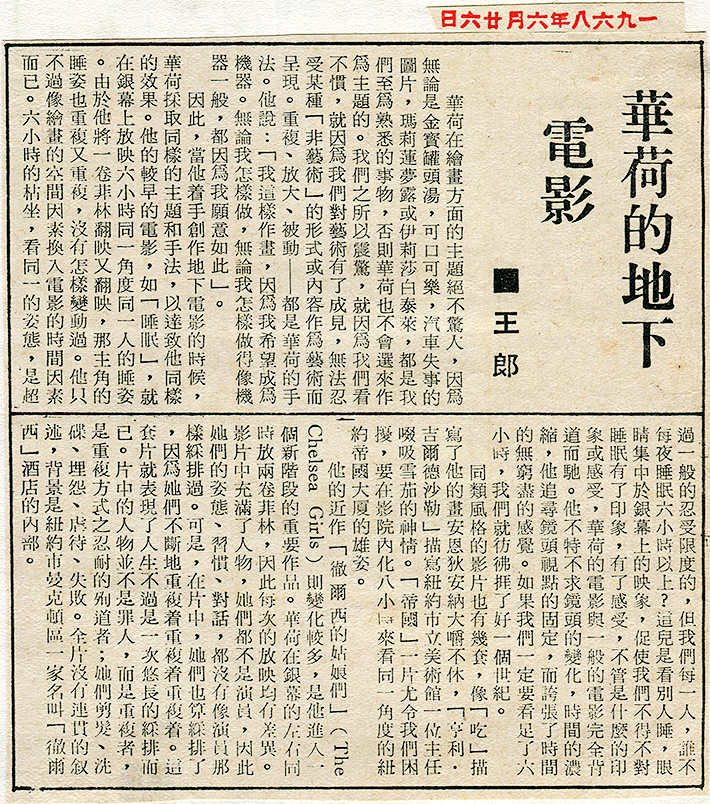 一九六八年六月廿六日
華荷的地下
電影
■王郎
華荷在繪畫方面的主題絕不驚人,因爲
無論是金寶罐頭湯,可口可樂,汽車失事的
圖片,瑪莉蓮夢露或伊莉莎白泰萊,都是我
們至爲熟悉的事物,否則華荷也不會選來作
爲主題的。我們之所以震驚,就因爲我們看
不慣,就因爲我們對藝術有了成見,無法忍
受某種「非藝術」的形式或內容作爲藝術而
呈現。重複、放大、被動——都是華荷的手
法。他說:「我這樣作畫,因爲我希望成爲
機器。無論我怎樣做,無論我怎樣做得像機
器一般,都因爲我願意如此」。
因此,當他着手創作地下電影的時候,
華荷採取同樣的主題和手法,以達致他同樣
的效果。他的較早的電影,如「睡眠」,就
在銀幕上放映六小時同一角度同一人的睡姿
。由於他將一卷菲林翻映又翻映,那主角的
睡姿也重複又重複,沒有怎樣變動過。他只
不過像繪畫的空間因素換入電影的時間因素
而已。六小時的枯坐,看同一的姿態,是超
過一般的忍受限度的,但我們每一人,誰不
每夜睡眠六小時以上?這兒是看別人睡,眼
睛集中於銀幕上的映象,促使我們不得不對
睡眠有了印象,有了感受,不管是什麼的印
象或感受,華荷的電影與一般的電影完全背
道而馳。他不特不求鏡頭的變化,時間的濃
縮,他追尋鏡頭視點的固定,而誇張了時間
的無窮盡的感覺。如果我們一定要看足了六
小時,我們就彷彿捱了好一個世紀。
同類風格的影片也有幾套,像「吃」描
寫了他的畫安恩狄安納大嚼不休,「亨利·
吉爾德沙勒」描寫紐約市立美術館一位主任
啜吸雪茄的神情。「帝國」一片尤令我們困
擾,要在影院內化八小時來看同一角度的紐
約帝國大厦的雄姿。
他的近作「徹爾西的姑娘們」(The
Chelsea Girls)則變化較多,是他進入一
個新階段的重要作品。華荷在銀幕的左右同
時放兩卷菲林,因此每次的放映均有差異。
影片中充滿了人物,她們都不是演員,因此
她們的姿態、習慣、對話,都沒有像演員那
樣綵排過。可是,在片中,她們也算綵排了
,因爲她們不斷地重複着重複着重複着。這
套片就表現了人生不過是一次悠長的綵排而
已。片中的人物並不是罪人,而是重複者,
是重複方式之忍耐的殉道者;她們剪髮、洗
碟、埋怨、虐待、失敗。全片沒有連貫的叙
述,背景是紐約市曼克頓區一家名叫「徹爾
西」酒店的內部。